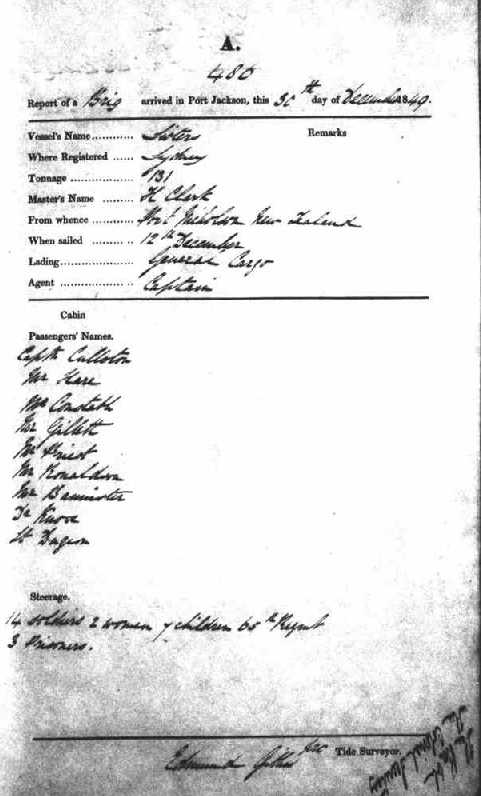 A.
486
Report of a Brig arrived in Port Jackson, this 30th day of December 1849.
Vessel's Name ............ Sisters
Remarks
Where Registered ...... Sydney
Tonnage .................. 131
Master's Name ......... H Clark
From whence ............ Port Nicholson New Zealand
When sailed ........... 12th December
Lading..................... General Cargo
Agent ..................... Captain
Cabin
Passengers' Names.
Captn
Mr Hare
Mr Constable
Mr Gillett
Mr Priest
Mr Ronaldson
Mr Bannister
Dr Knox
Steerage.
14 soldiers 2 women 7 children 65th Regmt
3 Prisoners.
Edmund Tide Surveyor.